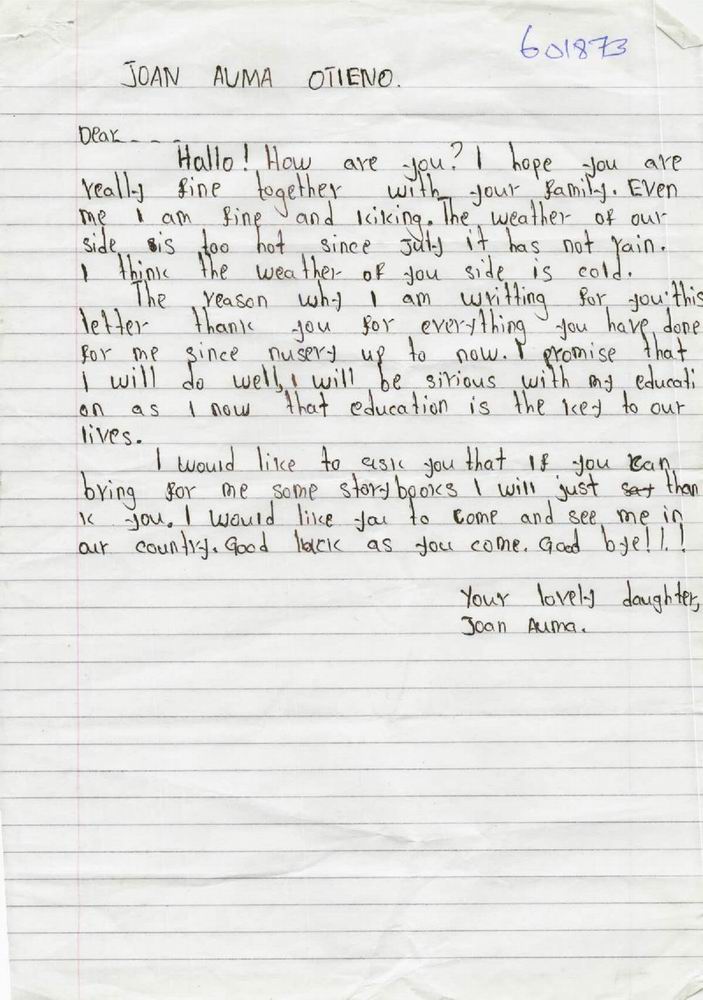 601873
JOAN AUMA OTIENO.
Dear - - - -
Hallo! How are you? I hope you are
really fine together with your family. Even
me I am fine and kiking. The weather of our
side sis too hot since july it has not rain.
I think the weather of you side is cold.
The reason why I am writting for you this
letter thank you for everything you have done
for me since nusery up to now. I promise that
I will do well, I will be sirious with my educati
on as I now that education is the key to our
lives.
I would like to ask you that if you can
bring for me some storybooks I will just say than
k you. I would like you to come and see me in
our country. Good luck as you come. Good bye!!.!
Your lovely daughter,
Joan Auma.